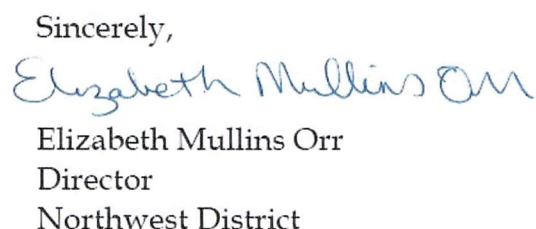 Sincerely,
Elizabeth Mullins Orr
Elizabeth Mullins Orr
Director
Northwest District